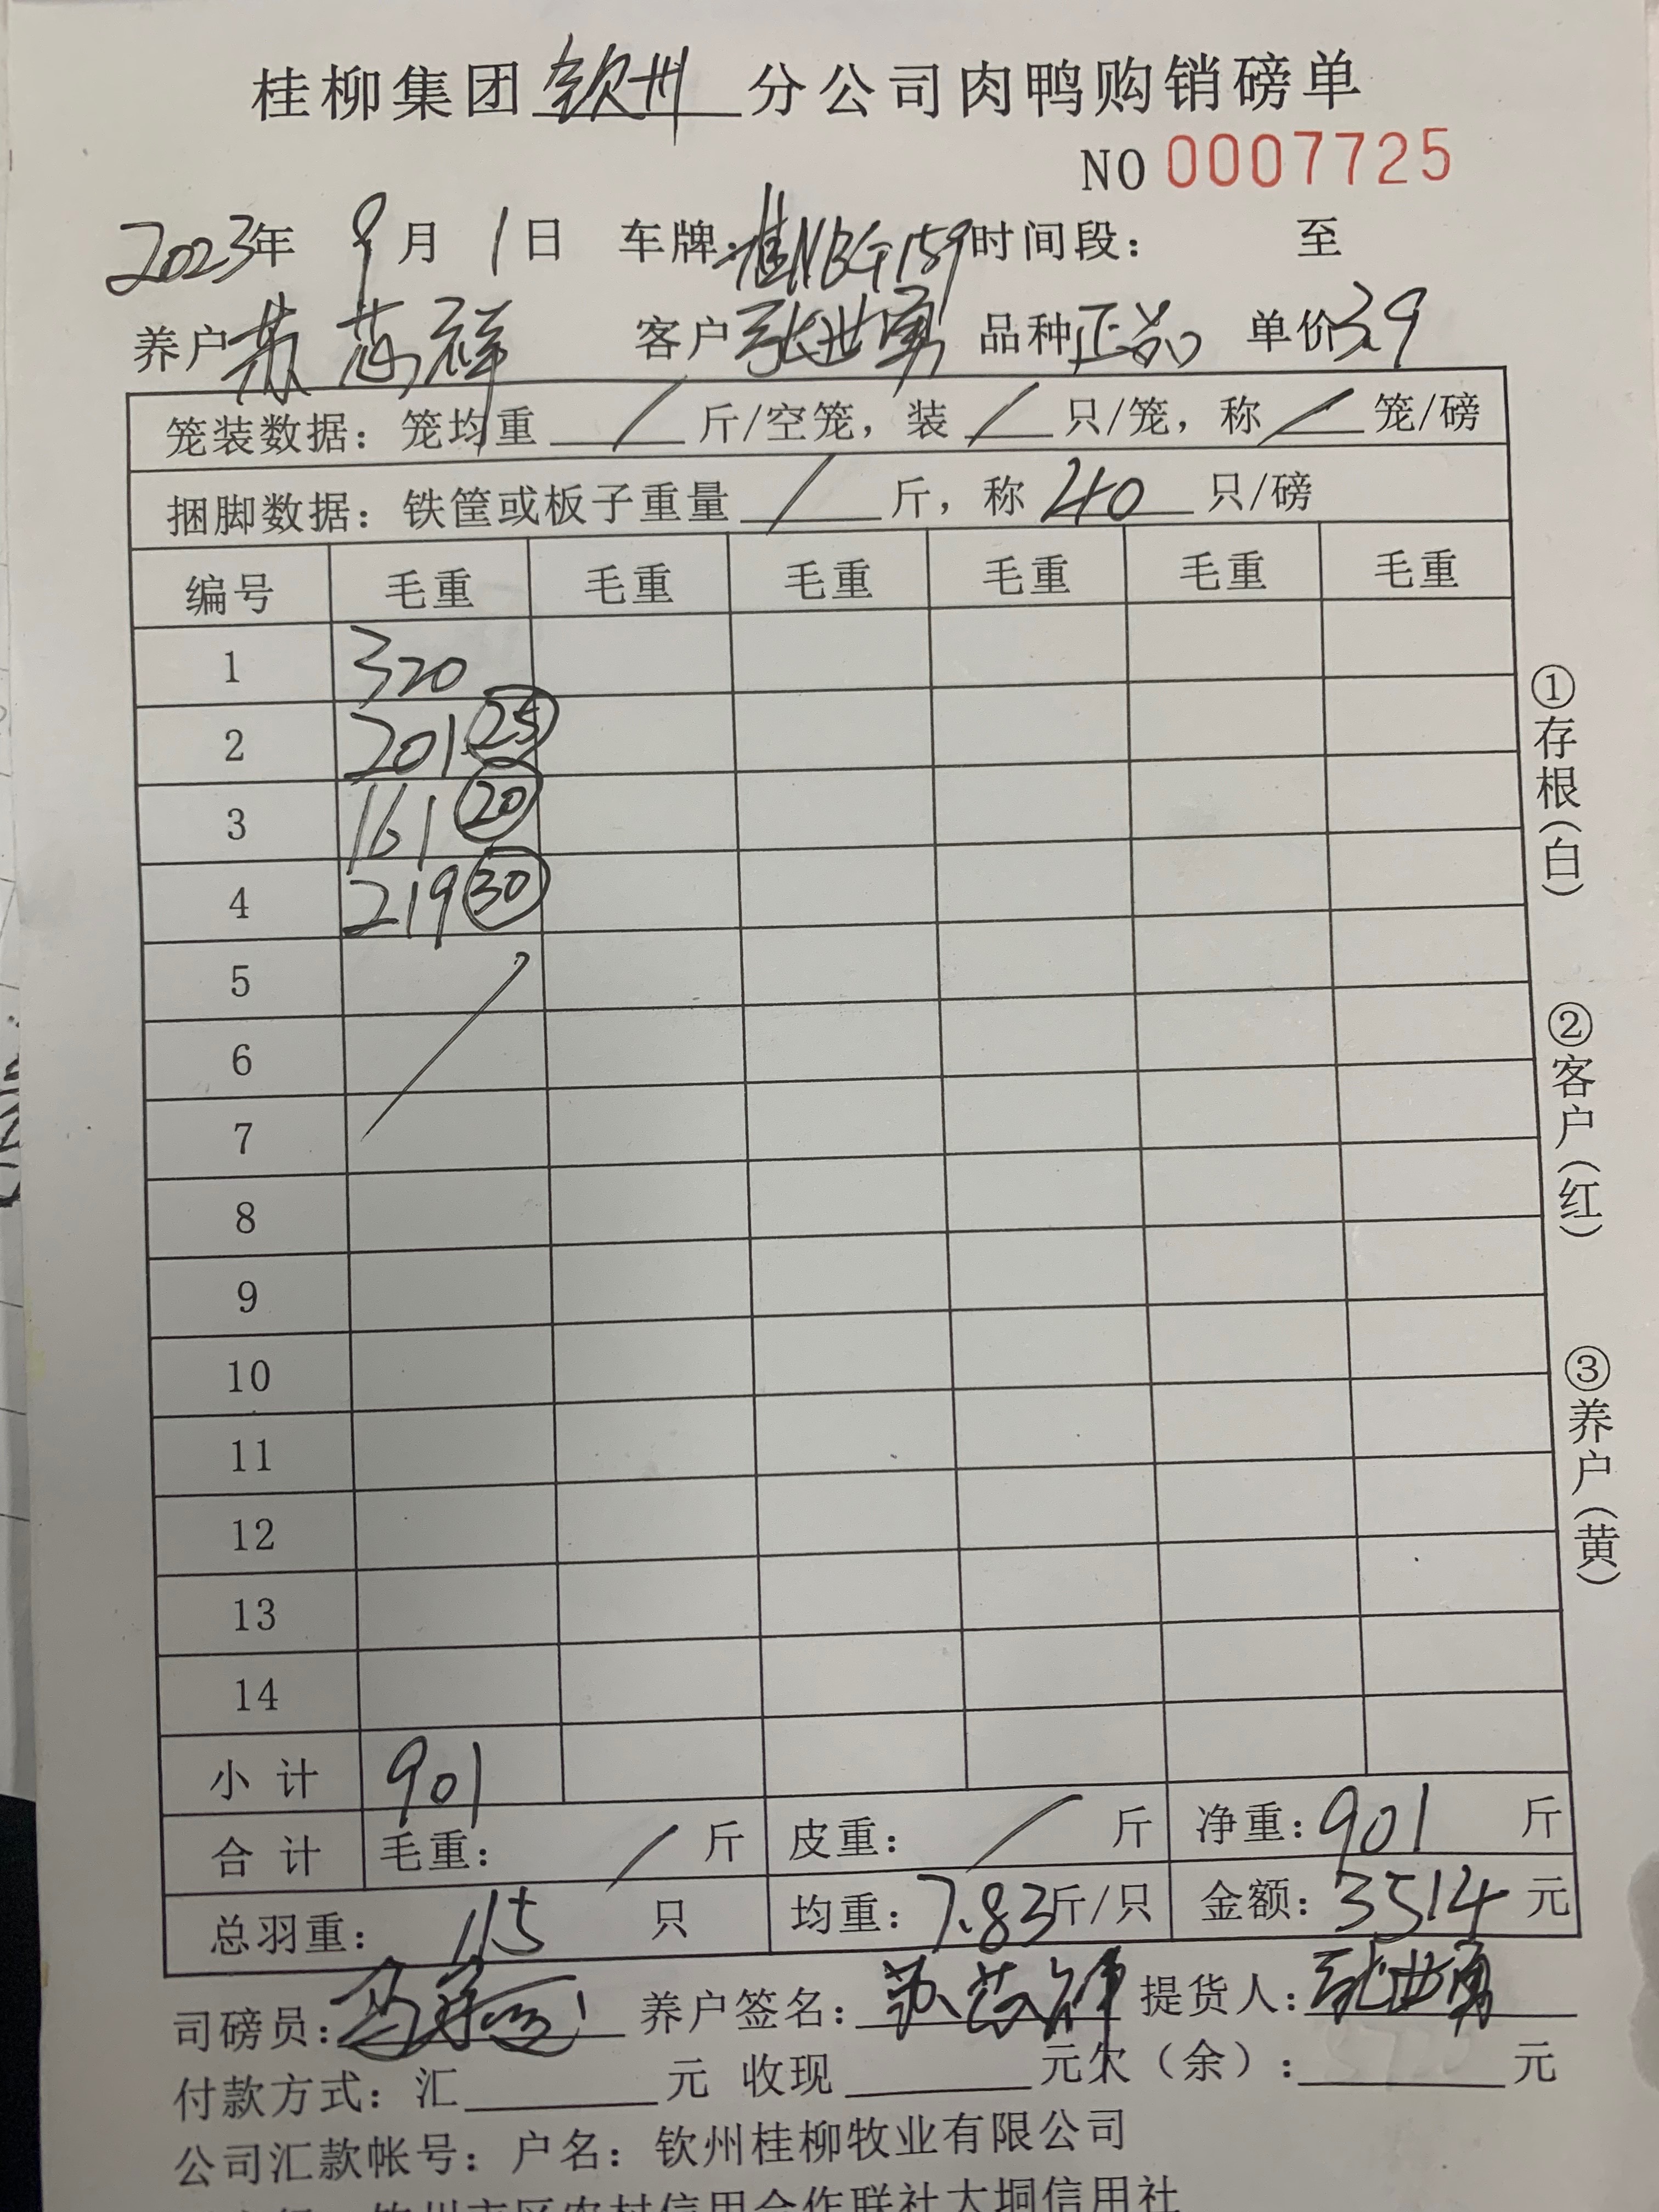 桂柳集团钦州分公司肉鸭购销磅单
NO 0007725
2023年 9月 1日 车牌:桂NBG159时间段: 至
养户苏芬祥 客户张世勇 品种正品 单价3.9
笼装数据: 笼均重 / 斤/空笼, 装 / 只/笼, 称 / 笼/磅
捆脚数据: 铁筐或板子重量 / 斤, 称 40 只/磅
编号 毛重 毛重 毛重 毛重 毛重 毛重
1 320
2 201 25
3 161 20
4 219 30
5
6
7
8
9
10
11
12
13
14
小计 901
合计 毛重: / 斤 皮重: / 斤 净重: 901 斤
总羽重: 115 只 均重: 7.83斤/只 金额: 3514 元
司磅员: 养户签名: 苏芬祥 提货人: 张世勇
付款方式: 汇 元 收现 元欠(余): 元
公司汇款帐号: 户名: 钦州桂柳牧业有限公司
钦州市区农村信用合作联社大垌信用社
①存根(白)
②客户(红)
③养户(黄)